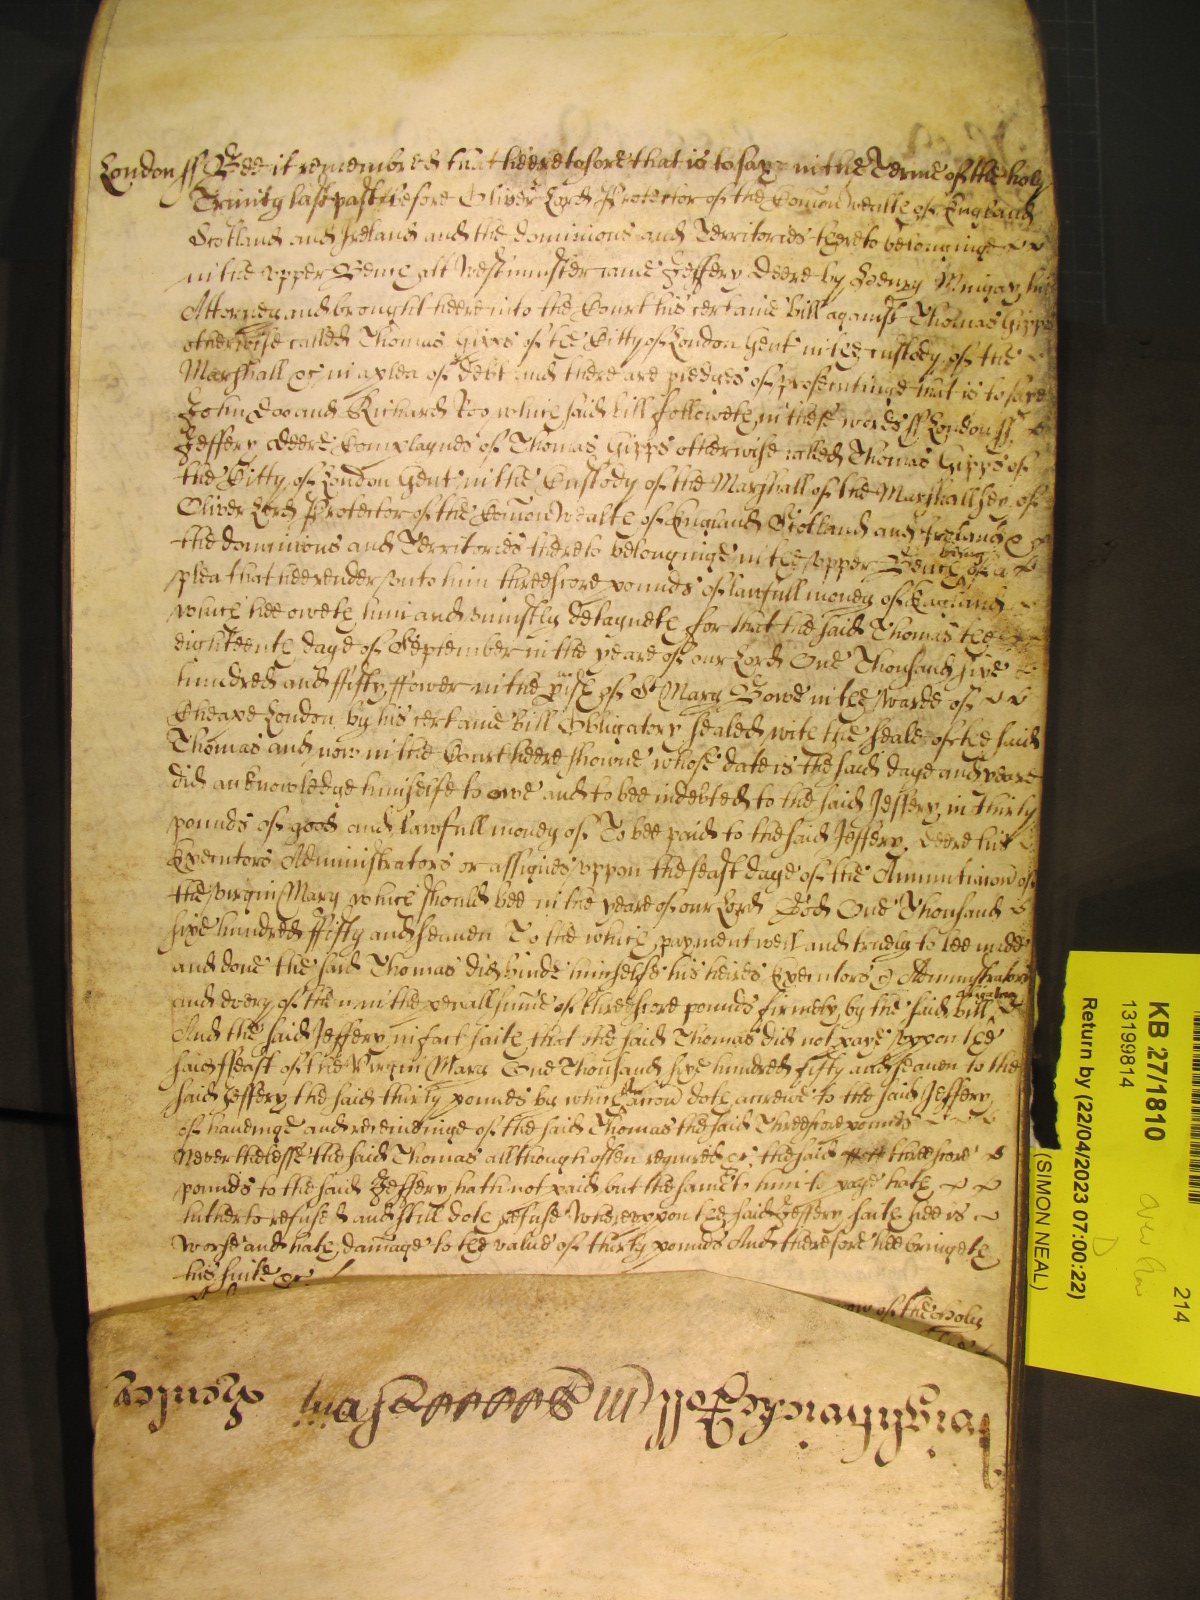 London ss Bee it remembred that heeretofore that is to say in the Terme of the holy
Trinity last past before Oliver Lord Protector of the Comon Wealth of England
Scotland and Ireland and the dominions and Territories thereto belonginge
in the upper Bench att Westminster came Jeffery Deere by Henry Mingay his
Attorney and brought heere into the Court his certaine bill against Thomas Gipps
otherwise called Thomas Gipps of the Citty of London Gent in the custody of the
Marshall &c in a plea of debt and there are pledges of prosecutinge that is to saye
John Doo and Richard Roo which said bill followeth in these words ss London ss
Jeffery Deere Complaynes of Thomas Gipps otherwise called Thomas Gipps of
the Citty of London Gent in the Custody of the Marshall of the Marshallsey of
Oliver Lord Protector of the Comon Wealth of England Scotland and Ireland &
the dominions and Territories thereto belonginge in the upper Bench being of a
plea that hee render unto him threescore pounds of lawfull money of England
which hee oweth him and uniustly detayneth for that the said Thomas the
eighteenth daye of September in the yeare of our Lord One Thousand sixe
hundred and ffifty ffower in the pish of St Mary Bowe in the warde of
Cheape London by his certaine bill Obligatory sealed with the seale of the said
Thomas and now in the Court heere showne whose date is the said daye and yeare
did acknowledge himselfe to owe and to bee indebted to the said Jeffery in Thirty
pounds of good and lawfull money of To bee paid to the said Jeffery Deere his
Executors Administrators or assignes uppon the feast daye of the Annuntiacion of
the virgin Mary which should bee in the yeare of our Lord God One Thousand
sixe hundred ffifty and seaven To the which payment well and truely to bee made
and done the said Thomas did binde himselfe his heires Executors & Administrators
and every of them in the penall summe of threescore pounds firmely by the said bill
And the said Jeffery in fact saith that the said Thomas did not paye uppon the
said ffeast of the Virgin Mary One Thousand sixe hundred fifty and seaven to the
said Jeffery the said thirty pounds by which accion doth accrewe to the said Jeffery
of haveinge and receiveinge of the said Thomas the said Threescore pounds
Neverthelesse the said Thomas allthough often required &c the said threescore
pounds to the said Jeffery hath not paid but the same to him to paye hath
hitherto refused and still doth refuse Whereuppon the said Jeffery saith hee is
worse and hath damage to the value of thirty pounds And therefore hee bringeth
his suite &c
of the holy
KB 27/1810
13199814
Return by (22/04/2023 07:00:22)
(SIMON NEAL)
214
D